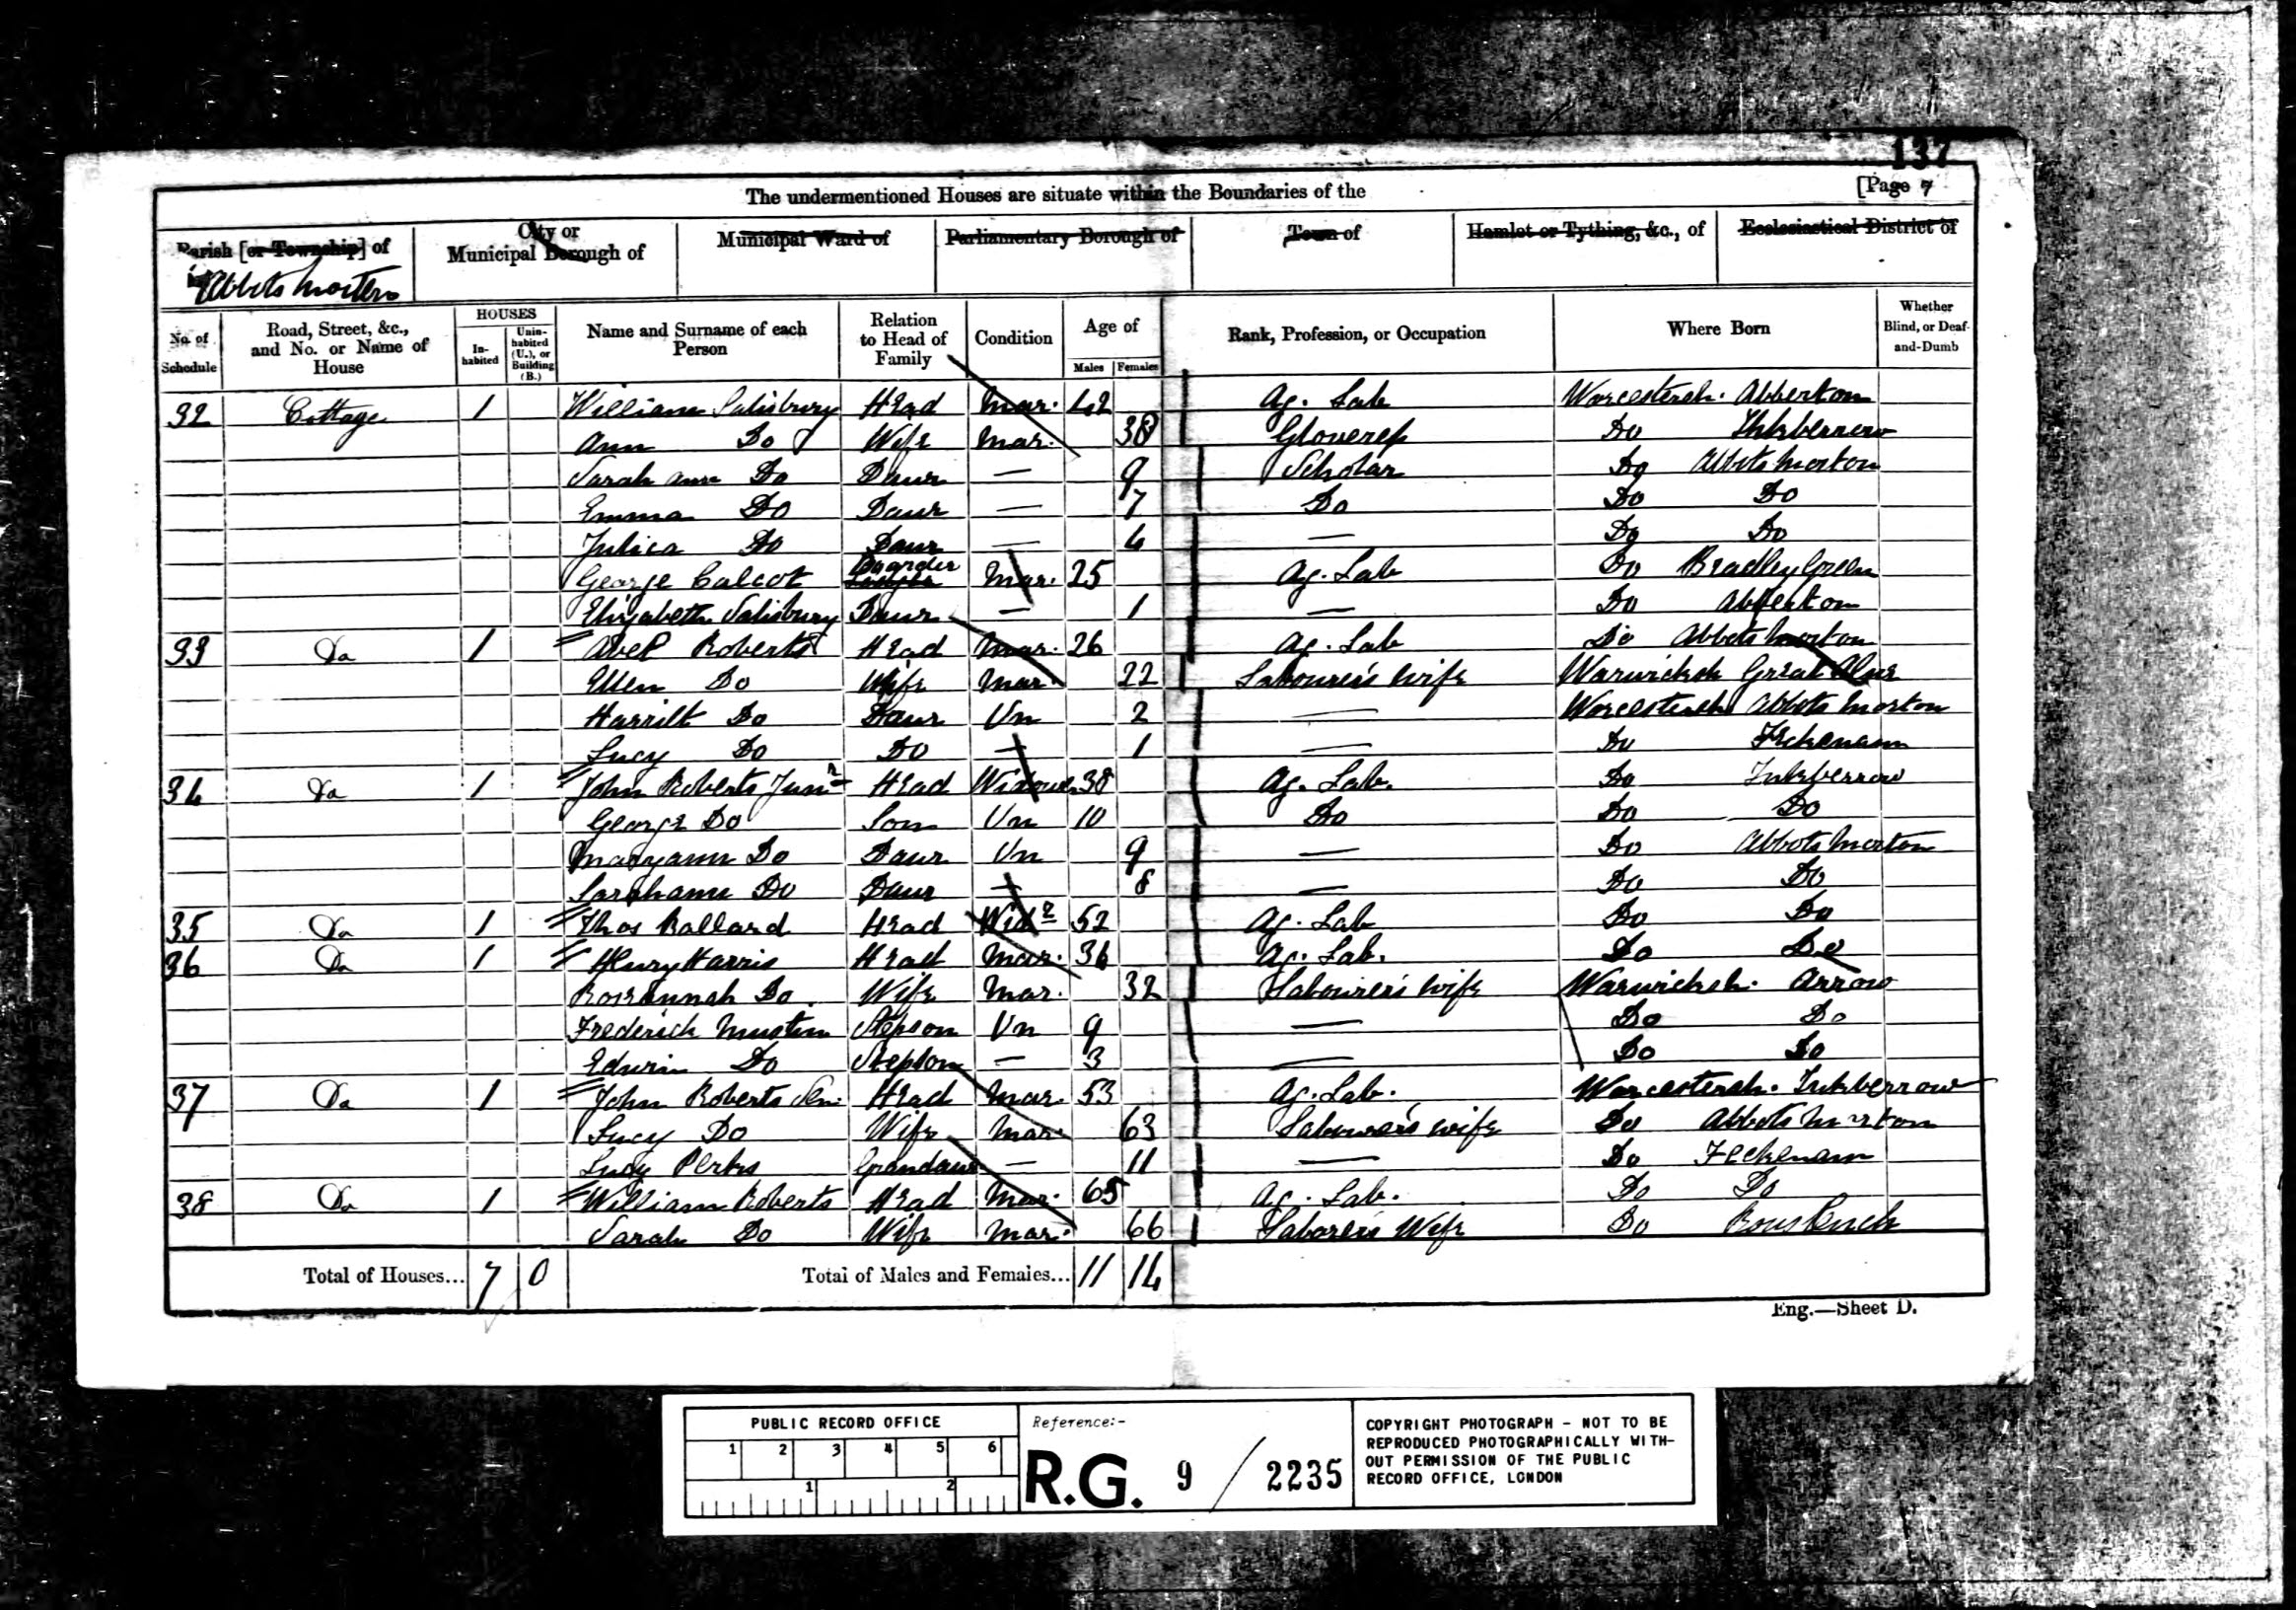 137
The undermentioned Houses are situate within the Boundaries of the [Page 7
Parish [or Township] of City or Municipal Borough of Municipal Ward of Parliamentary Borough of Town of Hamlet or Tything, &c., of Ecclesiastical District of
Abbots Morton
No. of Schedule Road, Street, &c., and No. or Name of House HOUSES Inhabited Uninhabited (U.), or Building (B.) Name and Surname of each Person Relation to Head of Family Condition Age of Males Females Rank, Profession, or Occupation Where Born Whether Blind, or Deaf-and-Dumb
32 Cottage 1 William Salisbury Head Mar. 42 Ag. Lab Worcestersh. Abberton
Ann Do Wife Mar. 38 Gloveress Do Inkberrow
Sarah Ann Do Daur — 9 Scholar Do Abbots Morton
Emma Do Daur — 7 Do Do Do
Julica Do Daur — 4 — Do Do
George Calcot Boarder Mar. 25 Ag. Lab Do Bradley Green
Elizabeth Salisbury Daur — 1 — Do Abberton
33 Do 1 Abel Roberts Head Mar. 26 Ag. Lab Do Abbots Morton
Ellen Do Wife Mar. 22 Labourer's Wife Warwicksh Great Alne
Harriet Do Daur Un 2 — Worcestersh Abbots Morton
Lucy Do Do — 1 — Do Feckenam
34 Do 1 John Roberts Junr Head Widower 38 Ag. Lab. Do Inkberrow
George Do Son Un 10 Do Do Do
Maryann Do Daur Un 9 — Do Abbots Morton
Sarahann Do Daur — 8 — Do Do
35 Do 1 Thos Ballard Head Widr 52 Ag. Lab Do Do
36 Do 1 Henry Harris Head Mar. 36 Ag. Lab. Do Do
Rosannah Do. Wife Mar. 32 Labourer's Wife Warwicksh. Arrow
Frederick Mustin Stepson Un 9 — Do Do
Edwin Do Stepson — 3 — Do Do
37 Do 1 John Roberts Sen. Head Mar. 53 Ag. Lab. Worcestersh. Inkberrow
Lucy Do Wife Mar. 63 Labourer's Wife Do Abbots Morton
Lucy Perks Grandaur — 11 — Do Feckenam
38 Do 1 William Roberts Head Mar. 65 Ag. Lab. Do Do
Sarah Do Wife Mar. 66 Laborer's Wife Do Rous Lench
Total of Houses... 7 0 Total of Males and Females... 11 14
Eng.—Sheet D.
PUBLIC RECORD OFFICE
1 2 3 4 5 6
1 2
Reference:-
R.G. 9 / 2235
COPYRIGHT PHOTOGRAPH – NOT TO BE
REPRODUCED PHOTOGRAPHICALLY WITH-
OUT PERMISSION OF THE PUBLIC
RECORD OFFICE, LONDON